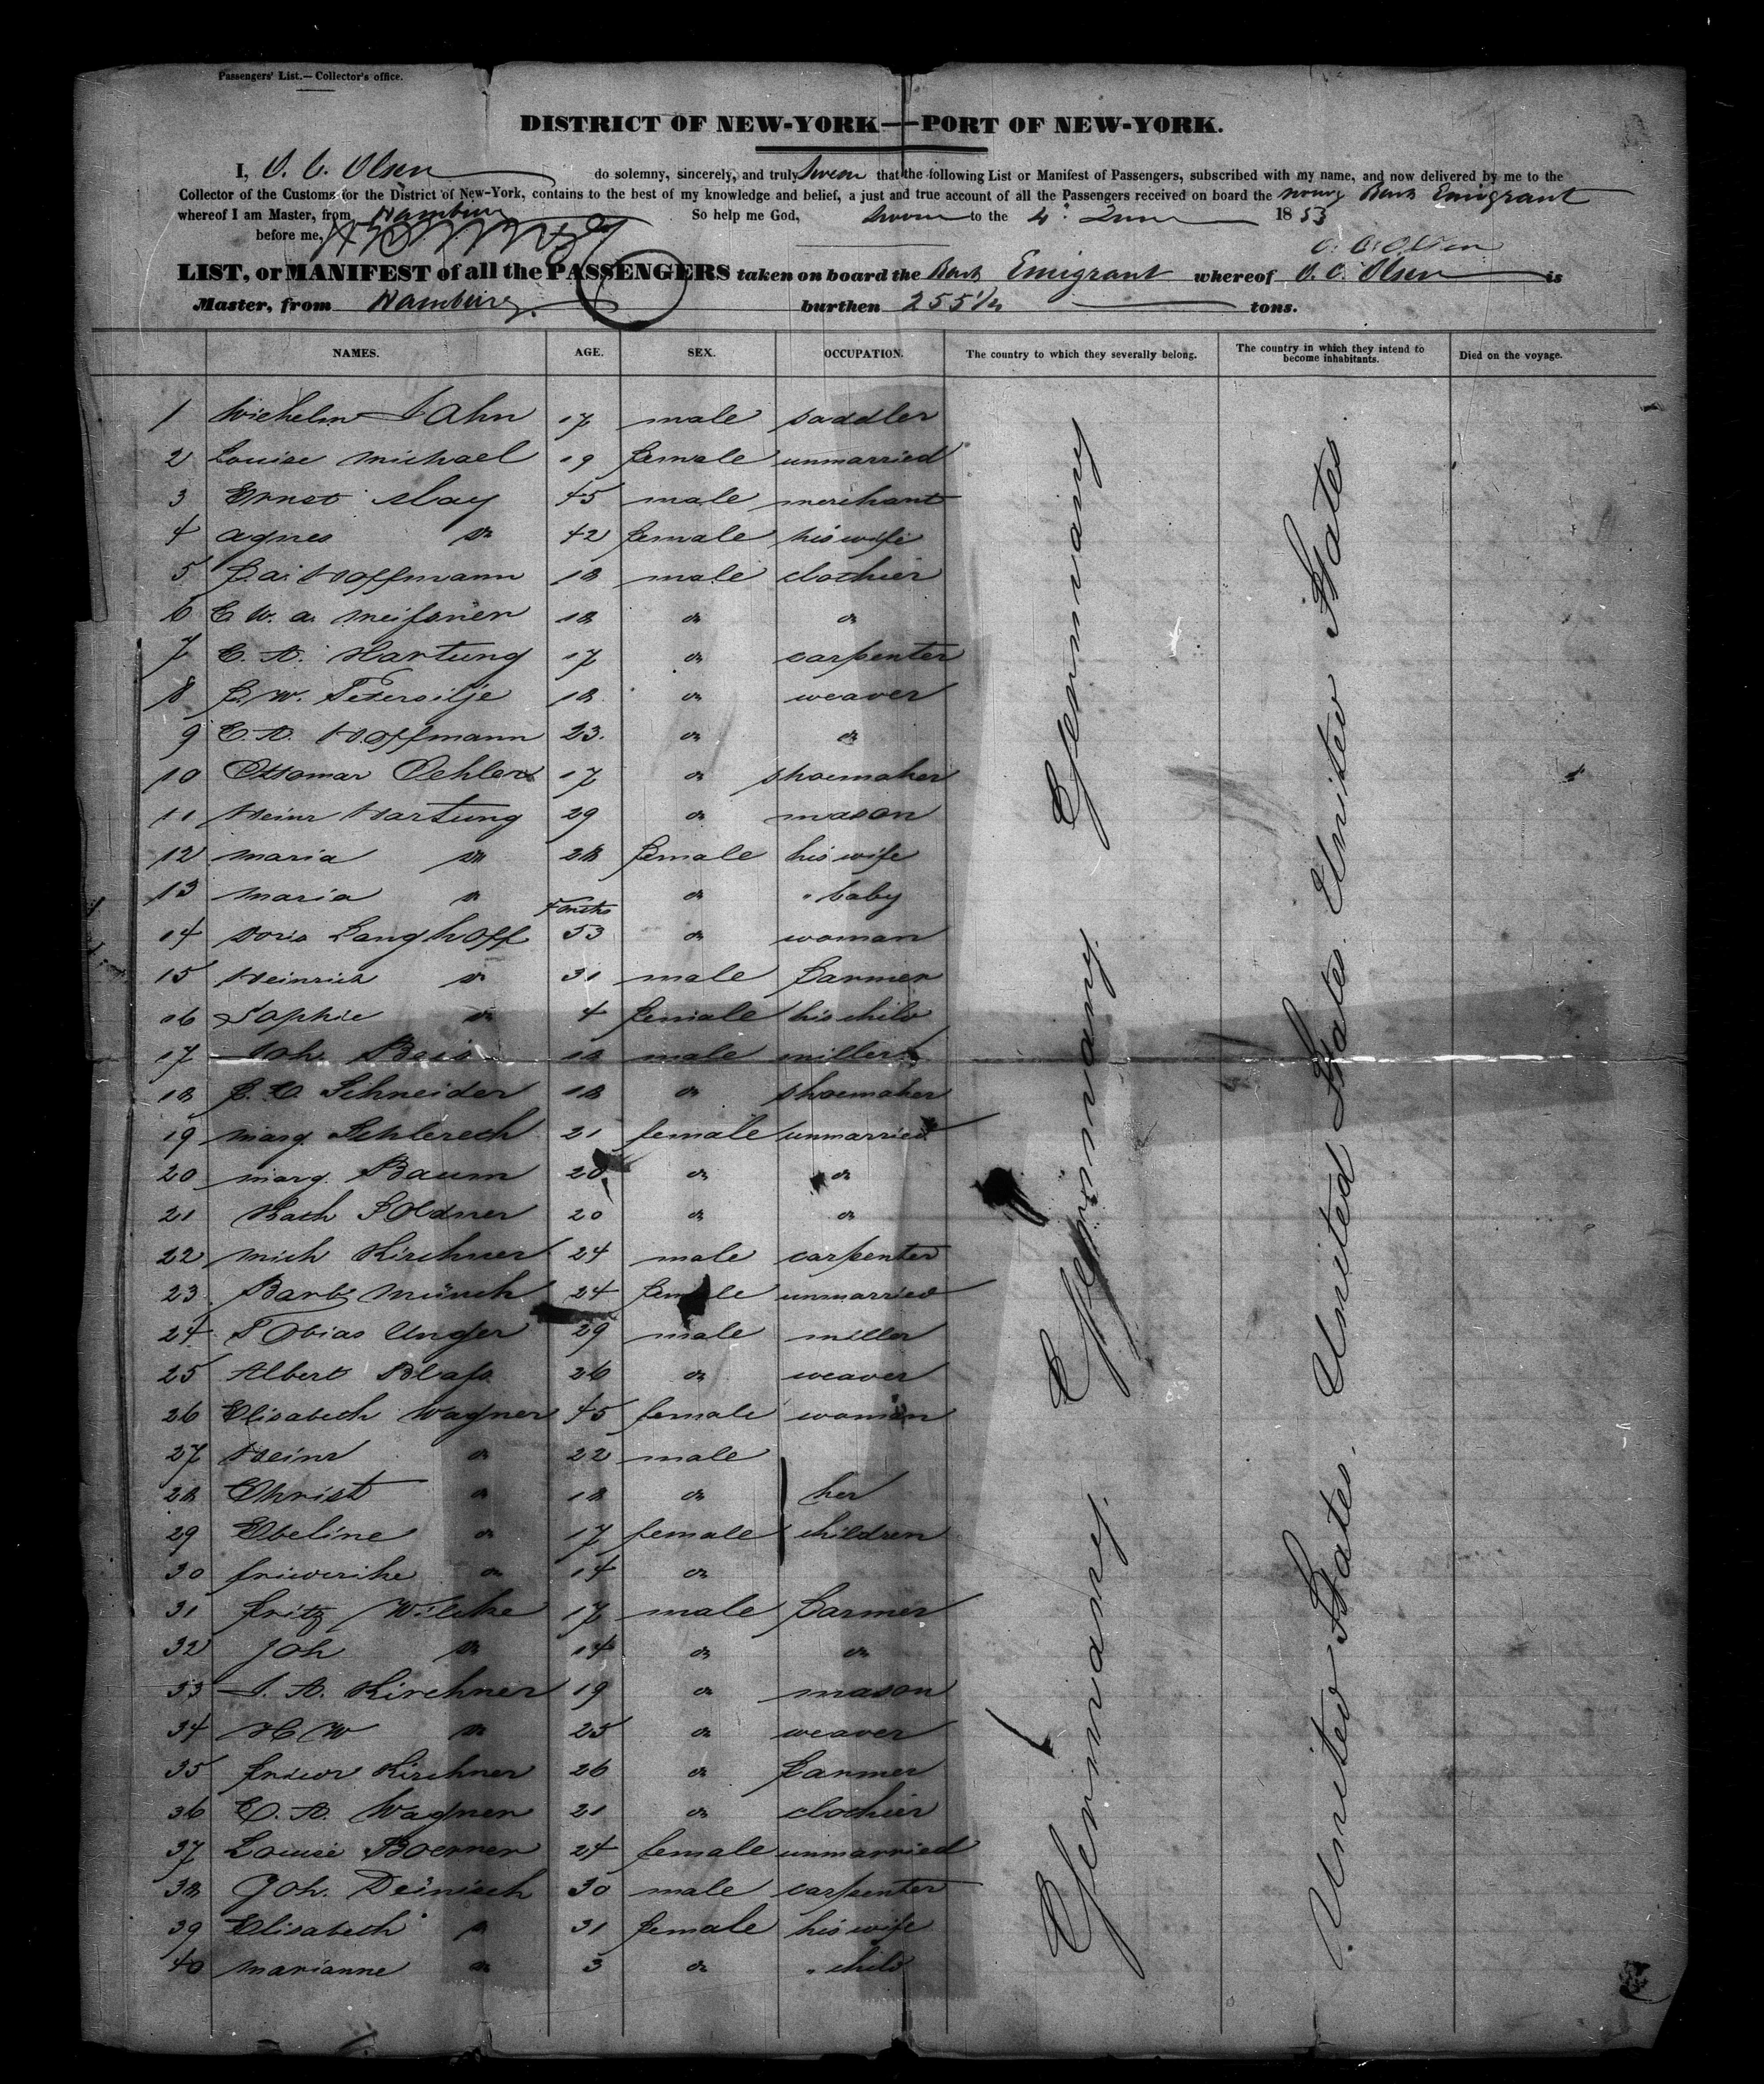 Passengers' List.—Collector's office.
DISTRICT OF NEW-YORK—PORT OF NEW-YORK.
I, O. C. Olsen do solemny, sincerely, and truly swear that the following List or Manifest of Passengers, subscribed with my name, and now delivered by me to the
Collector of the Customs for the District of New-York, contains to the best of my knowledge and belief, a just and true account of all the Passengers received on board the Bark Emigrant
whereof I am Master, from Hamburg So help me God, to the 4. June 1853
before me,
O. C. Olsen
LIST, or MANIFEST of all the PASSENGERS taken on board the Bark Emigrant whereof O. C. Olsen is
Master, from Hamburg. burthen 255 1/2 tons.
NAMES. AGE. SEX. OCCUPATION. The country to which they severally belong. The country in which they intend to become inhabitants. Died on the voyage.
1 Wilhelm Jahn 17 male saddler
2 Louise Michael 19 female unmarried
3 Ernst May 45 male merchant
4 Agnes do 42 female his wife
5 Hoffmann 18 male clothier
6 E. W. A. Meißner 18 do do
7 C. A. Hartung 17 do carpenter
8 F. W. Petersilje 18 do weaver
9 E. A. Hoffmann 23. do do
10 Ottomar Oehlers 17 do shoemaker
11 Heinr Hartung 29 do mason
12 Maria do 28 female his wife
13 Maria do do " baby
14 Doris Langhoff 53 do woman
15 Heinrich do 31 male farmer
16 Sophie do 4 female his child
17 Joh. 18 male miller
18 Schneider 18 do shoemaker
19 Marg. Schlerech 21 female unmarried
20 Marg. Baum 20 do do
21 Kath Soldner 20 do do
22 Mich Kirchner 24 male carpenter
23 Barb. Münch 24 female unmarried
24 Tobias Unger 29 male miller
25 Albert Blaß 26 do weaver
26 Elisabeth Wagner 45 female woman
27 Heinr do 22 male
28 Christ do 18 do her
29 Ebeline do 17 female children
30 Friederike do 14 do
31 Fritz Wilcke 17 male farmer
32 Joh do 14 do do
33 J. A. Kirchner 19 do mason
34 H W do 25 do weaver
35 Friedr Kirchner 26 do farmer
36 C. A. Wagner 21 do clothier
37 Louise Boerner 24 female unmarried
38 Joh. Deinisch 30 male carpenter
39 Elisabeth do 31 female his wife
40 Marianne do 3 do " child
Germany. Germany. Germany. Germany
United States. United States United States. United States